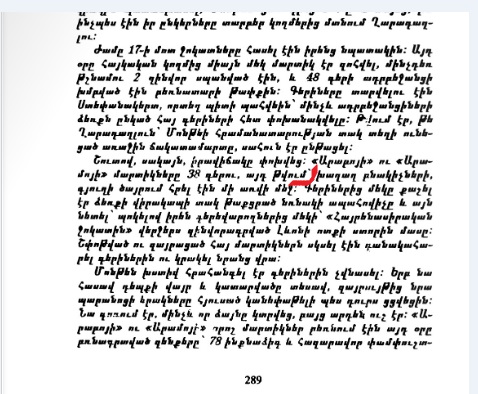 ինչպես էին իր ընկերները տարբեր կողմերից մտնում Ղարադաղ-
լու:
Ժամը 17-ի մոտ ջոկատները հասել էին իրենց նպատակին: Այդ
օրը հայկական կողմից միայն մեկ մարտիկ էր զոհվել, մինչդեռ
թշնամու 2 զինվոր սպանված էին, և 48 գերի ադրբեջանցի
խմբված էին բեռնատարի թափքին: Գերիները տարվելու էին
Ստեփանակերտ, որտեղ պիտի պահվեին՝ մինչև ադրբեջանցիների
ձեռքն ընկած հայ գերիների հետ փոխանակվելը: Թվում էր, թե
Ղարադաղլուն՝ Մոնթեի հրամանատարության տակ տեղի ունե-
ցած առաջին ճակատամարտը, սահուն էր ընթացել:
Շուտով, սակայն, իրավիճակը փոխվեց: «Արաբոյի» ու «Արա-
մոյի» մարտիկները 38 գերու, այդ թվում՝ խաղաղ բնակիչների,
գյուղի ծայրում հրել էին մի առվի մեջ: Գերիներից մեկը քաշել
էր ձեռքի վիրակապի տակ թաքցրած նռնակի ապահովիչը և այն
նետել՝ պոկելով իրեն գերեվարողներից մեկի՝ «Հայրենասիրական
ջոկատին» վերջերս զինվորագրված Լևոնի ոտքի ստորին մասը:
Շփոթված ու զայրացած հայ մարտիկներն սկսել էին դանակահա-
րել գերիներին ու կրակել նրանց վրա:
Մոնթեն խստիվ հրահանգել էր գերիներին չվնասել: Երբ նա
հասավ դեպքի վայր և կատարվածը տեսավ, զայրույթից նրա
պարանոցի երակները հյուսած կանեփաթելի պես դուրս ցցվեցին:
Նա գոռում էր, մինչև որ ձայնը կտրվեց, բայց արդեն ուշ էր: «Ա-
րաբոյի» ու «Արամոյի» որոշ մարտիկներ բեռնում էին այդ օրը
բռնագրաված զենքերը՝ 78 ինքնաձիգ և հազարավոր փամփուշտ-
289